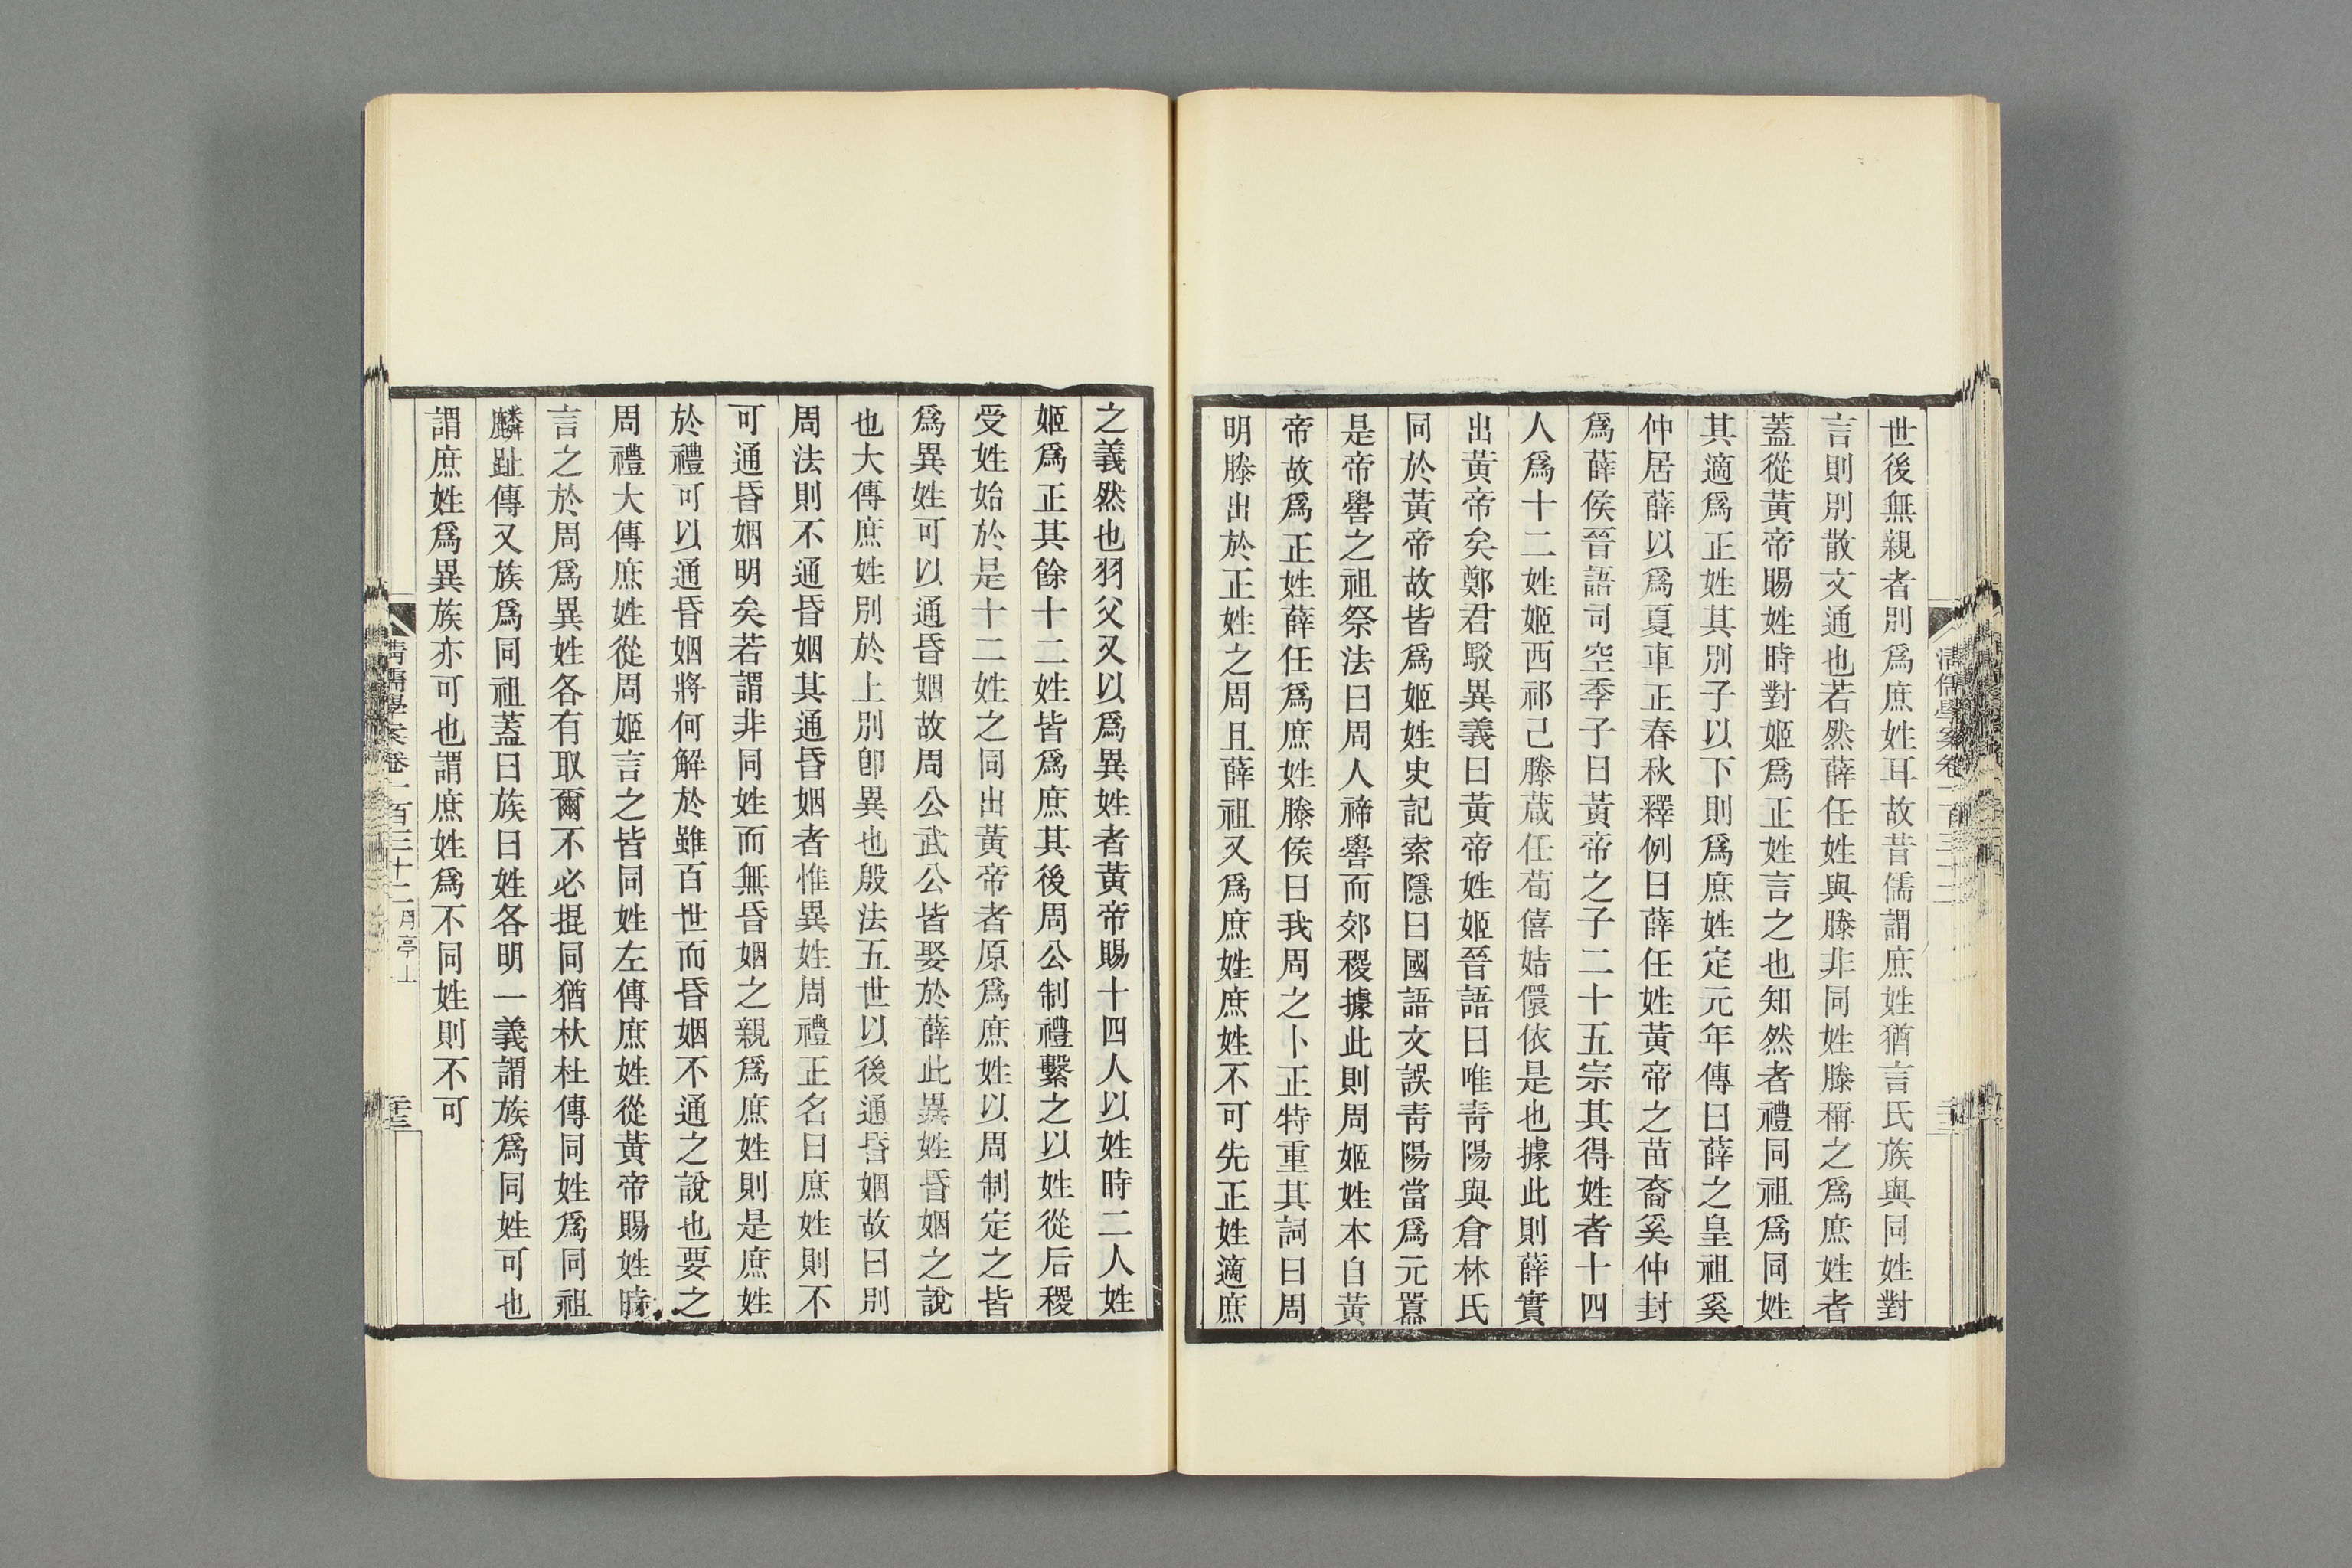 世後無親者別爲庶姓耳故昔儒謂庶姓猶言氏族與同姓對
言則別散文通也若然薛任姓與滕非同姓滕稱之爲庶姓者
蓋從黃帝賜姓時對姬爲正姓言之也知然者禮同祖爲同姓
其適爲正姓其別子以下則爲庶姓定元年傳曰薛之皇祖奚
仲居薛以爲夏車正春秋釋例曰薛任姓黃帝之苗裔奚仲封
爲薛侯晉語司空季子曰黃帝之子二十五宗其得姓者十四
人爲十二姓姬酉祁己滕葴任荀僖姞儇依是也據此則薛實
出黃帝矣鄭君駁異義曰黃帝姓姬晉語曰唯靑陽與倉林氏
同於黃帝故皆爲姬姓史記索隱曰國語文誤靑陽當爲元囂
是帝嚳之祖祭法曰周人禘嚳而郊稷據此則周姬姓本自黃
帝故爲正姓薛任爲庶姓滕侯曰我周之卜正特重其詞曰周
明滕出於正姓之周且薛祖又爲庶姓庶姓不可先正姓適庶
之義然也羽父又以爲異姓者黃帝賜十四人以姓時二人姓
姬爲正其餘十二姓皆爲庶其後周公制禮繫之以姓從后稷
受姓始於是十二姓之同出黃帝者原爲庶姓以周制定之皆
爲異姓可以通昏姻故周公武公皆娶於薛此異姓昏姻之說
也大傳庶姓別於上別卽異也殷法五世以後通昏姻故曰別
周法則不通昏姻其通昏姻者惟異姓周禮正名曰庶姓則不
可通昏姻明矣若謂非同姓而無昏姻之親爲庶姓則是庶姓
於禮可以通昏姻將何解於雖百世而昏姻不通之說也要之
周禮大傳庶姓從周姬言之皆同姓左傳庶姓從黃帝賜姓時
言之於周爲異姓各有取爾不必掍同猶杕杜傳同姓爲同祖
麟趾傳又族爲同祖蓋曰族曰姓各明一義謂族爲同姓可也
謂庶姓爲異族亦可也謂庶姓爲不同姓則不可
清儒學案卷一百三十二 月亭上